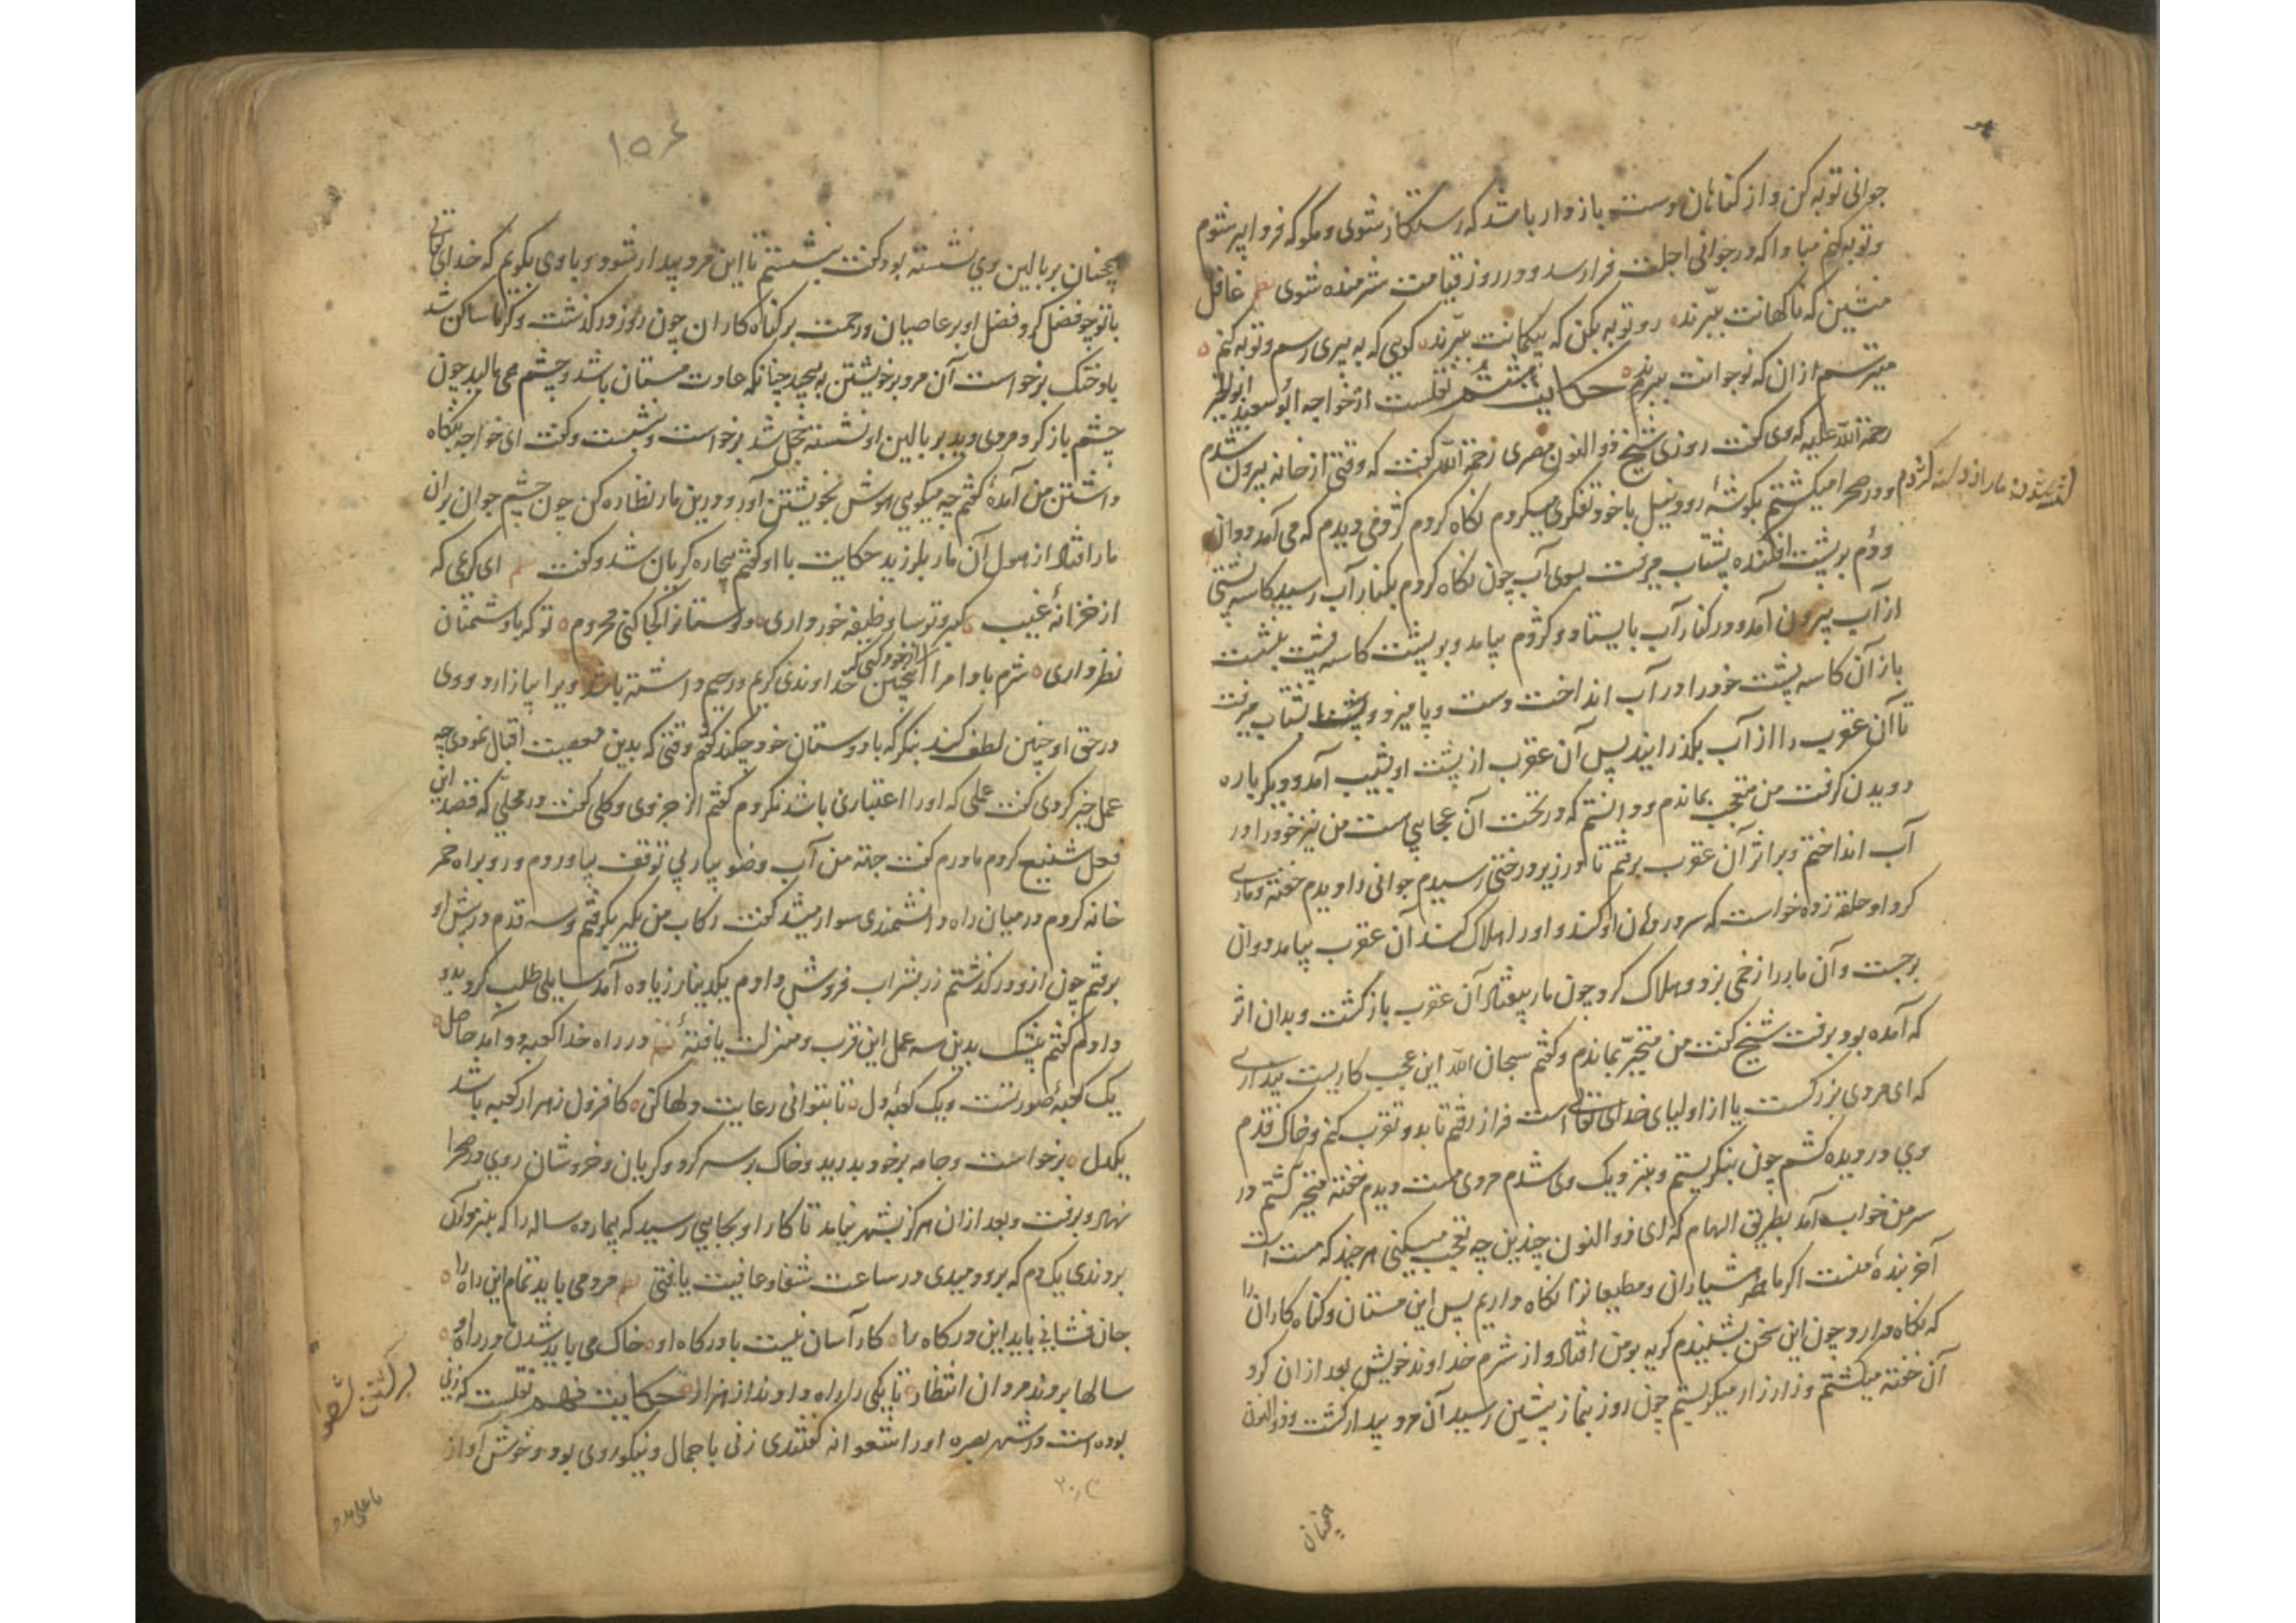 جوانی توبه کن و از گناهان دست بازدار باشد که رستگار شوی و مگو که فردا پیر شوم
و توبه کنم مبادا که در جوانی اجلت فرارسد و در روز قیامت شرمنده شوی نظم غافل
منشین که ناگهانت ببرند رو توبه بکن که بیگمانت ببرند گویی که به پیری رسم و توبه کنم
میترسم از آن که نوجوانت ببرند حکایت هشتم نقلست از خواجه ابو سعید ابوالخیر
رحمة الله علیه که وی گفت روزی شیخ ذوالنون مصری رحمه الله گفت که وقتی از خانه بیرون شدم
و در صحرا میگشتم بگوشهٔ رود نیل با خود تفکری میکردم نگاه کردم کژدمی دیدم که می آمد دوان
و دم بر پشت افکنده بشتاب میرفت بسوی آب چون نگاه کردم بکنار آب رسید کاسه پشتی
از آب بیرون آمد و در کنار آب بایستاد و کژدم بیامد و بر پشت کاسه پشت بنشست
باز آن کاسه پشت خود را در آب انداخت دست و پا میزد و بشتاب میرفت
تا آن عقرب را از آب بگذرانید پس آن عقرب از پشت او بشیب آمد و دیگر باره
دویدن گرفت من متعجب بماندم و دانستم که در تحت آن عجایبی است من نیز خود را در
آب انداختم و بر اثر آن عقرب برفتم تا در زیر درختی رسیدم جوانی را دیدم خفته و ماری
گرد او حلقه زده خواست که سر در دهان او کند و او را هلاک کند آن عقرب بیامد دوان
برجست و آن مار را زخمی بزد و هلاک کرد چون مار بیفتاد آن عقرب بازگشت و بدان اثر
که آمده بود برفت شیخ گفت من متحیر بماندم و گفتم سبحان الله این عجب کاریست پنداری
که ای مردی بزرگست یا از اولیای خدای تعالی است فراز رفتم تا بدو تقرب کنم و خاک قدم
وی در دیده کشم چون بنگریستم و بنزدیک وی شدم مردی مست دیدم خفته متحیر گشتم در
سر من خواب آمد بطریق الهام که ای ذوالنون چندین چه تعجب میکنی هر چند که مست است
آخر بندهٔ منست اگر ما هشیاران و مطیعانرا نگاه داریم پس این مستان و گناه کاران را
که نگاه دارد چون این سخن بشنیدم گریه بر من افتاد و از شرم خداوند خویش بعد از آن گرد
آن خفته میگشتم و زار زار میگریستم چون روز بنماز پیشین رسید آن مرد بیدار گشت و ذوالنون
همچنان
۱۵۶
همچنان بر بالین وی نشسته بود گفت بنشستم تا این مرد بیدار شود و با وی بگویم که خدای تعالی
با تو چو فضل کرد و فضل او بر عاصیان و رحمت بر گناه کاران چون روز درگذشت و گرما ساکن شد
باد خنک برخواست آن مرد بر خویشتن بپیچید چنانکه عادت مستان باشد و چشم می مالید چون
چشم باز کرد مردی دید بر بالین او نشسته خجل شد برخواست و بنشست و گفت ای خواجه بنگاه
داشتن من آمدهٔ گفتم چه میگویی هوش بخویشتن آور و درین مار نظاره کن چون چشم جوان بران
مار افتاد از هول آن مار بلرزید حکایت با او گفتم بیچاره گریان شد و گفت نظم ای کریمی که
از خزانهٔ غیب گبر و ترسا وظیفه خور داری دوستانرا کجا کنی محروم تو که با دشمنان
نظر داری شرم بادا مرا از خود کسی که اینچنین خداوندی کریم و رحیم داشته باشد و ویرا بیازارد و وی
در حق او چنین لطف کند بنگر که با دوستان خود چکند گفتم وقتی که بدین معصیت اقبال نمودی چه
عمل خیر کردی گفت عملی که او را اعتباری باشد نکردم گفتم از جزوی و کلی گفت در محلی که قصد این
فعل شنیع کردم مادرم گفت جته من آب وضو بیار بی توقف بیاوردم و رو براه خمر
خانه کردم در میان راه دانشمندی سوار میشد گفت رکاب من بگیر بگرفتم و سه قدم در پیش او
برفتم چون از وی درگذشتم زر بشراب فروش دادم یکدینار زیاده آمد سایلی طلب کرد بدو
دادم گفتم بیشک بدین سه عمل این قرب و منزلت یافتهٔ نظم در راه خدا کعبه دو آمد حاصل
یک کعبهٔ صورتست و یک کعبهٔ دل تا بتوانی رعایت دلها کن کافزون ز هزار کعبه باشد
یکدل برخواست و جامه بر خود بدرید و خاک بر سر کرد و گریان و خروشان روی در صحرا
نهاد و برفت و بعد از آن هرگز بشهر نیامد تا کار او بجایی رسید که بیمار ده ساله را که بنزد وی
بردندی یک دم که برو دمیدی در ساعت شفا و عافیت یافتی نظم مرد می باید تمام این راه را
جان فشانی باید این درگاه را کار آسان نیست با درگاه او خاک می باید شدن در راه او
سالها بردند مردان انتظار تا یکی را راه دادند از هزار حکایت نهم نقلست که زنی
بوده است در شهر بصره او را شعوانه گفتندی زنی با جمال و نیکو روی بود و خوش آواز